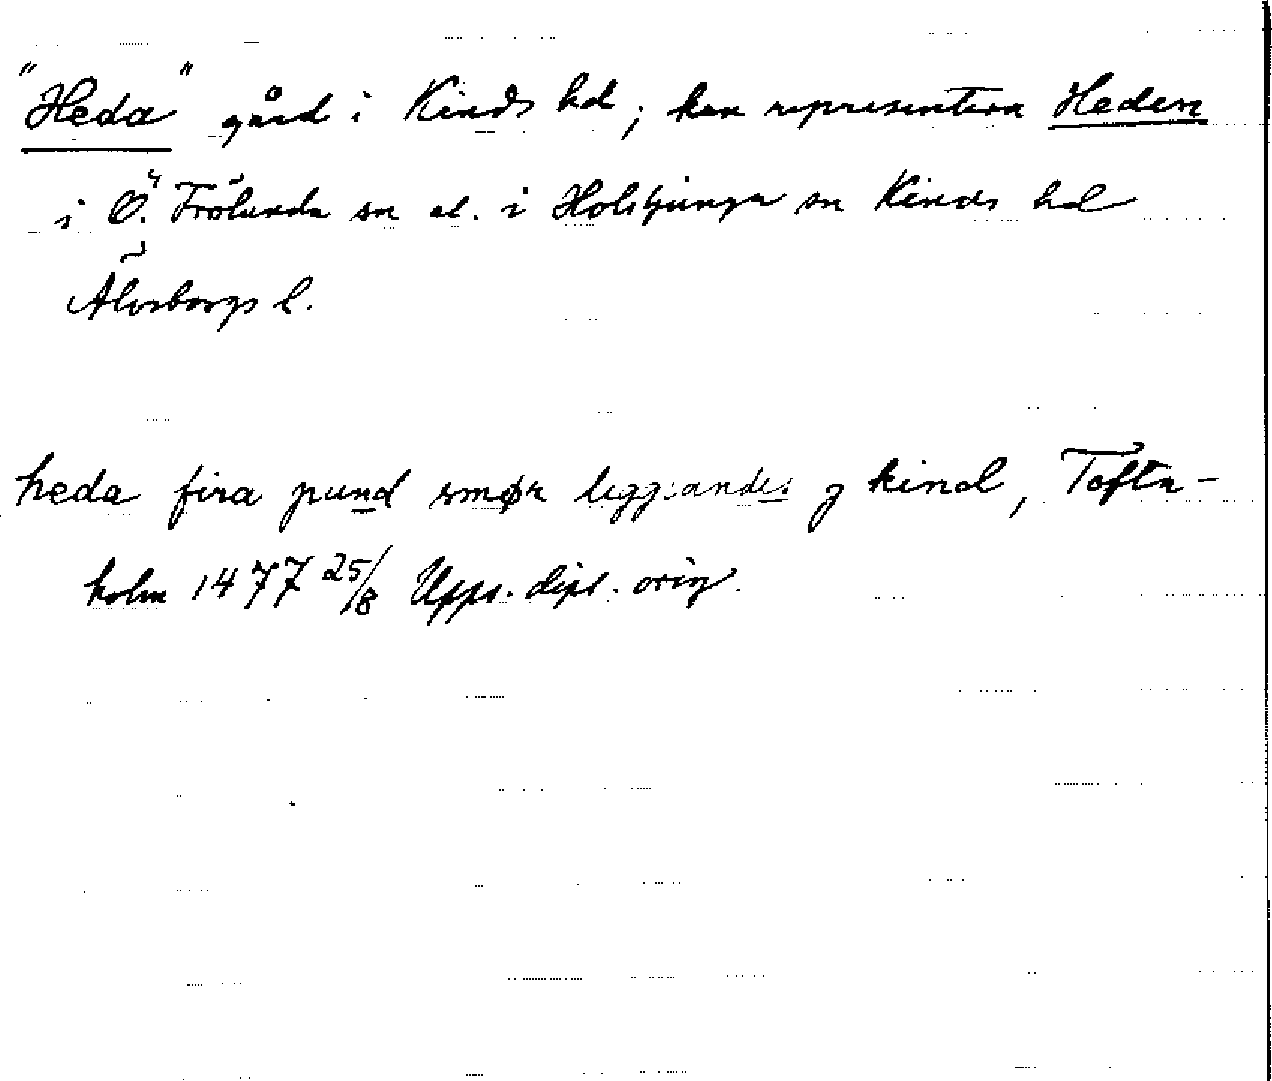 "Heda" gård i Kinds hd; kan representera Heden
i Ö. Frölunda sn el. i Holsljunga sn Kinds hd
Älvsborgs l.
heda fira pund smør liggiandes j kind, Tofta-
holm 1477 25/8 Upps. dipl. orig.